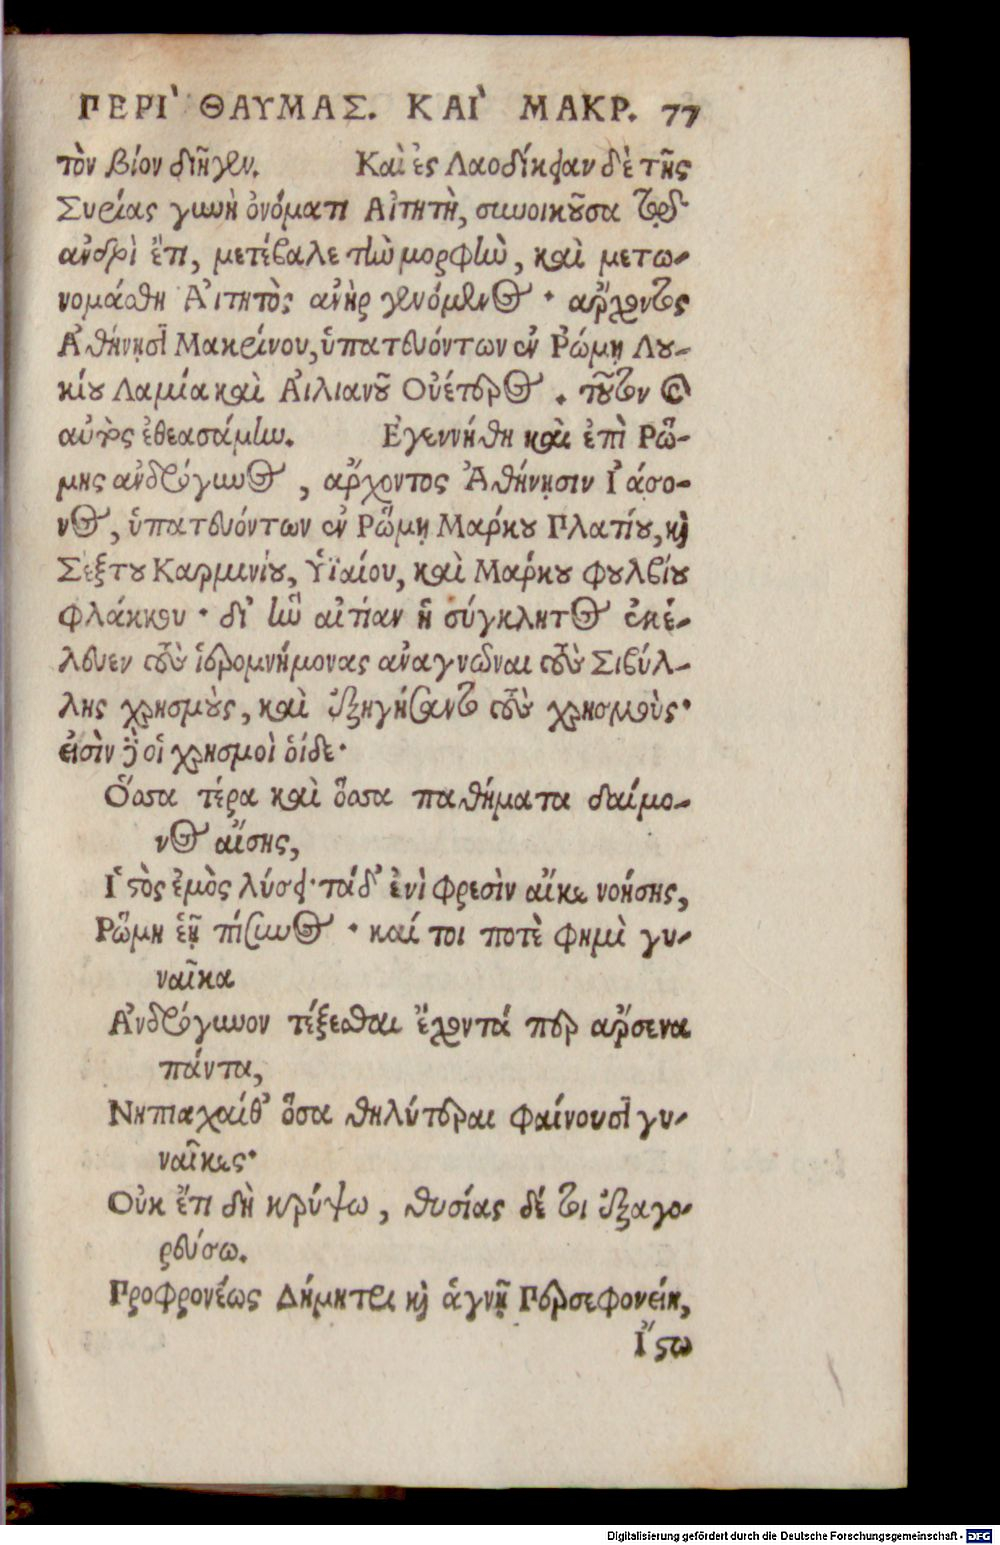 ΠΕΡΙ` ΘΑΥΜΑΣ. ΚΑΙ` ΜΑΚΡ. 77
τὸν βίον διῆγεν. Καὶ ἐς Λαοδίκειαν δὲ τῆς
Συρίας γυνὴ ὀνόματι Αἰτητὴ, συνοικοῦσα τῷδ
ἀνδρὶ ἔτι, μετέβαλε τὴν μορφὴν, καὶ μετω-
νομάσθη Αἰτητὸς ἀνὴρ γενόμενος· ἄρχοντος
Ἀθήνησι Μακρίνου, ὑπατευόντων ἐν Ῥώμῃ Λου-
κίου Λαμία καὶ Αἰλιανοῦ Οὐέτερος. τοῦτον καὶ
αὐτὸς ἐθεασάμην. Ἐγεννήθη καὶ ἐπὶ Ῥώ-
μης ἀνδρόγυνος, ἄρχοντος Ἀθήνησιν Ἰάσο-
νος, ὑπατευόντων ἐν Ῥώμῃ Μαρκου Πλατίου, καὶ
Σέξτου Καρμινίου, Ὑϊαίου, καὶ Μαρκου Φουλβίου
Φλάκκου· δι' ἣν αἰτίαν ἡ σύγκλητος ἐκέ-
λευεν τοὺς ἱερομνήμονας ἀναγνῶναι τοὺς Σιβύλ-
λης χρησμοὺς, καὶ ἐξηγήσαντο τοὺς χρησμοὺς·
εἰσὶν δὲ οἱ χρησμοὶ οἵδε·
Ὅσσα τέρα καὶ ὅσσα παθήματα δαίμο-
νος αἴσης,
Ἱστὸς ἐμὸς λύσει· τάδ' ἐνὶ φρεσὶν αἴκε νοήσῃς,
Ῥώμη ἑῇ πίσυνος· καί τοι ποτὲ φημὶ γυ-
ναῖκα
Ἀνδρόγυνον τέξεσθαι ἔχοντά περ ἄρσενα
πάντα,
Νηπιαχαίθ' ὅσα θηλύτεραι φαίνουσι γυ-
ναῖκες·
Οὐκ ἔτι δὴ κρύψω, θυσίας δέ τοι ἐξαγο-
ρεύσω.
Προφρονέως Δήμητρι καὶ ἁγνῇ Περσεφονείῃ,
Ἴστω
Digitalisierung gefördert durch die Deutsche Forschungsgemeinschaft - DFG